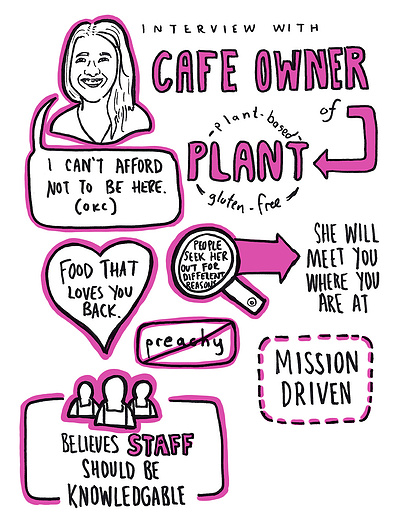 INTERVIEW WITH
CAFE OWNER
of
plant-based
PLANT
gluten-free
I CAN'T AFFORD
NOT TO BE HERE.
(OKC)
FOOD THAT
LOVES YOU
BACK.
PEOPLE
SEEK HER
OUT FOR
DIFFERENT
REASONS
SHE WILL
MEET YOU
WHERE YOU
ARE AT
preachy
MISSION
DRIVEN
BELIEVES STAFF
SHOULD BE
KNOWLEDGABLE